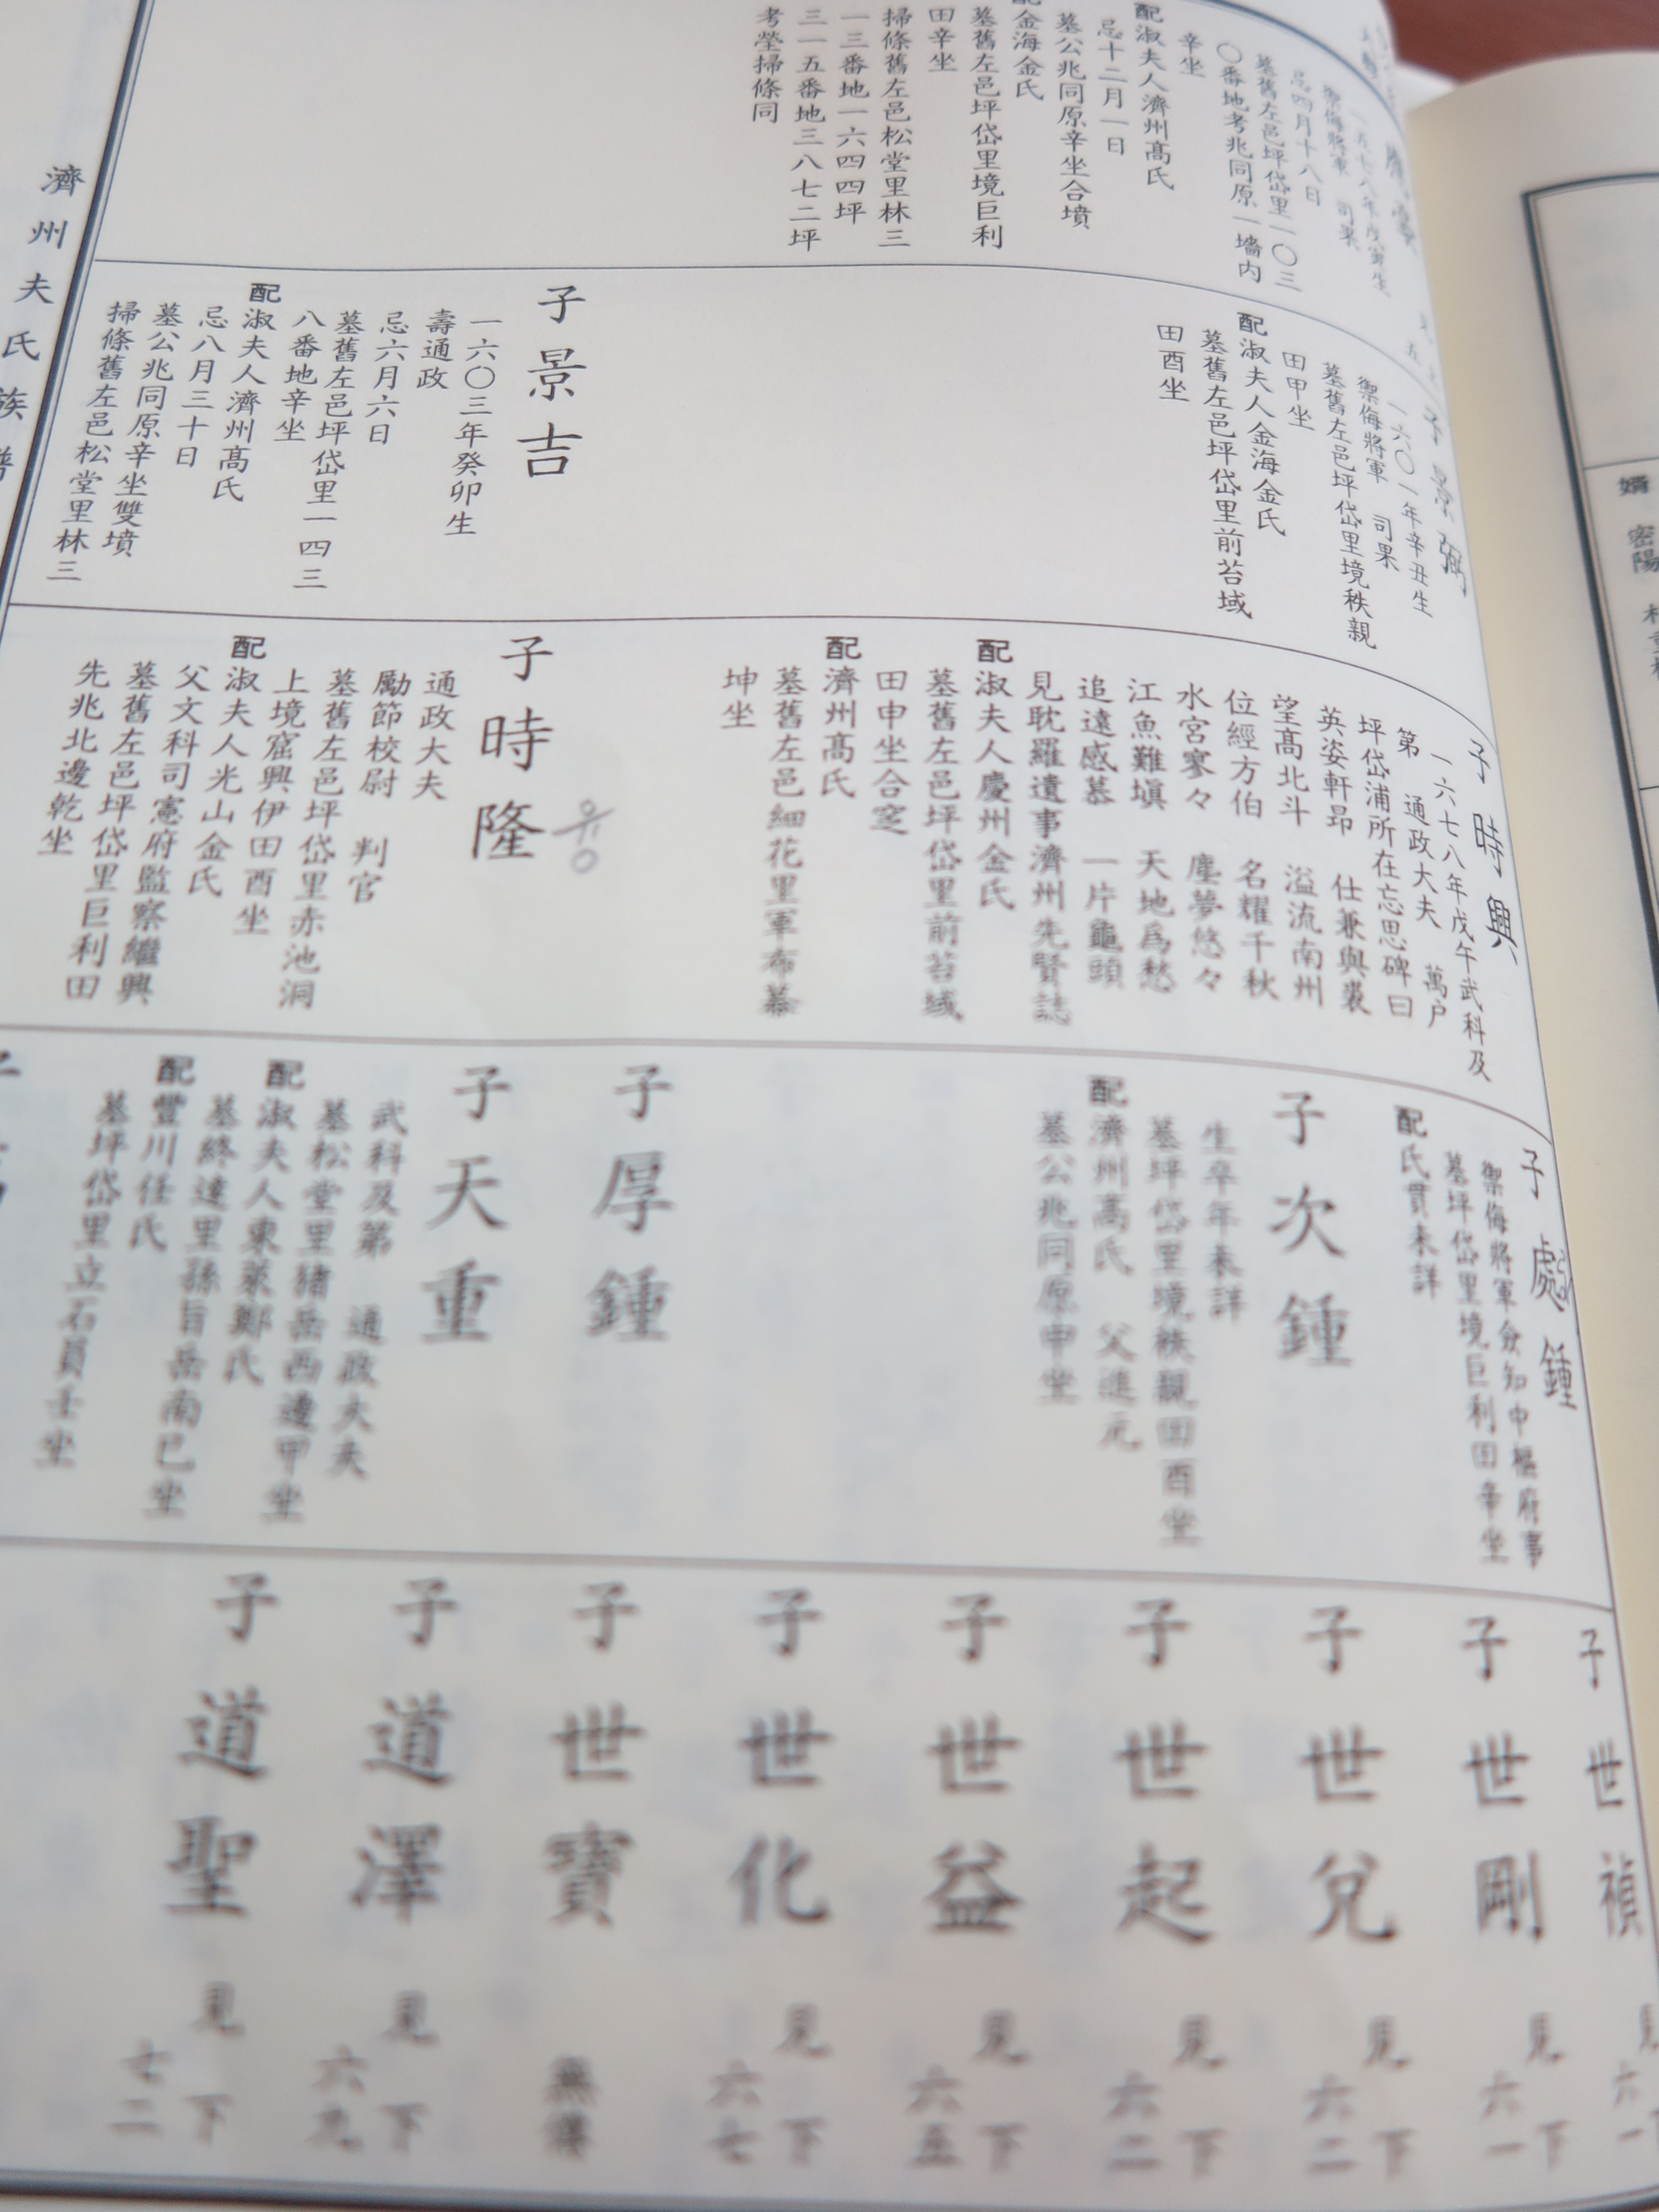 禦侮將軍 司果
忌四月十八日
墓舊左邑坪岱里一〇三
〇番地考兆同原一墻內
辛坐
配淑夫人濟州高氏
忌十二月一日
墓公兆同原辛坐合墳
配金海金氏
墓舊左邑坪岱里境巨利
田辛坐
掃條舊左邑松堂里林三
一三番地一六四四坪
三一五番地三八七二坪
考塋掃條同
子景弼
一六〇一年辛丑生
禦侮將軍 司果
墓舊左邑坪岱里境秩親
田甲坐
配淑夫人金海金氏
墓舊左邑坪岱里前苔域
田酉坐
子景吉
一六〇三年癸卯生
壽通政
忌六月六日
墓舊左邑坪岱里一四三
八番地辛坐
配淑夫人濟州高氏
忌八月三十日
墓公兆同原辛坐雙墳
掃條舊左邑松堂里林三
子時興
一六七八年戊午武科及
第 通政大夫 萬戶
坪岱浦所在忘思碑曰
英姿軒昻 仕兼與裘
望高北斗 溢流南州
位經方伯 名耀千秋
水宮寥々 塵夢悠々
江魚難塡 天地爲愁
追遠感慕 一片龜頭
見耽羅遺事濟州先賢誌
配淑夫人慶州金氏
墓舊左邑坪岱里前苔域
田申坐合窆
配濟州高氏
墓舊左邑細花里軍布慕
坤坐
子時隆
융
通政大夫
勵節校尉 判官
墓舊左邑坪岱里赤池洞
上境窟興伊田酉坐
配淑夫人光山金氏
父文科司憲府監察繼興
墓舊左邑坪岱里巨利田
先兆北邊乾坐
子處鍾
禦侮將軍僉知中樞府事
墓坪岱里境巨利田辛坐
配氏貫未詳
子次鍾
生卒年未詳
墓坪岱里境秩親田酉坐
配濟州高氏 父進元
墓公兆同原申坐
子厚鍾
子天重
武科及第 通政大夫
墓松堂里猪岳西邊甲坐
配淑夫人東萊鄭氏
墓終達里孫旨岳南巳坐
配豐川任氏
墓坪岱里立石員壬坐
子世禎
子世剛 見下六一
子世兌 見下六二
子世起 見下六二
子世益 見下六五
子世化 見下六七
子世寶 無後
子道澤 見下六九
子道聖 見下七二
濟州夫氏族譜
婿 密陽